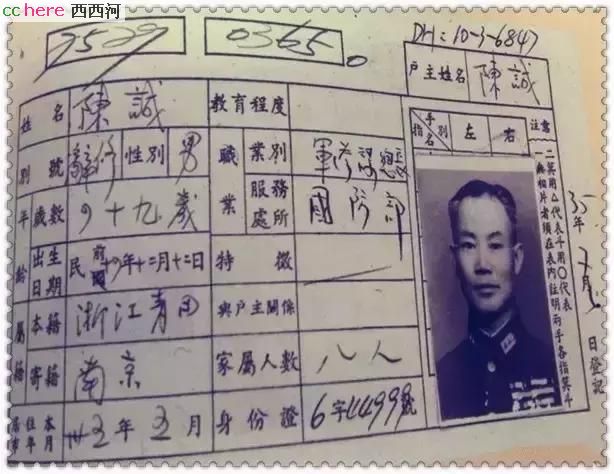 cchere 西西河
7529 0365
DH:10-3-6847
戶主姓名 陳誠
姓名 陳誠 教育程度
別號 辭修 性別 男 職業 業別 軍 參謀總長
年齡 歲數 四十九歲 服務處所 國防部
出生日期 民前國十四年十二月十二日 特徵
屬籍 本籍 浙江青田 與戶主關係
寄籍 南京 家屬人數 八人
本市居住年月 卅五年五月 身份證 6字44999號
手別 指名 左 右
注意
二箕用△代表斗用○代表
無相片者須在表內註明兩手各指箕斗
35年 月 日登記